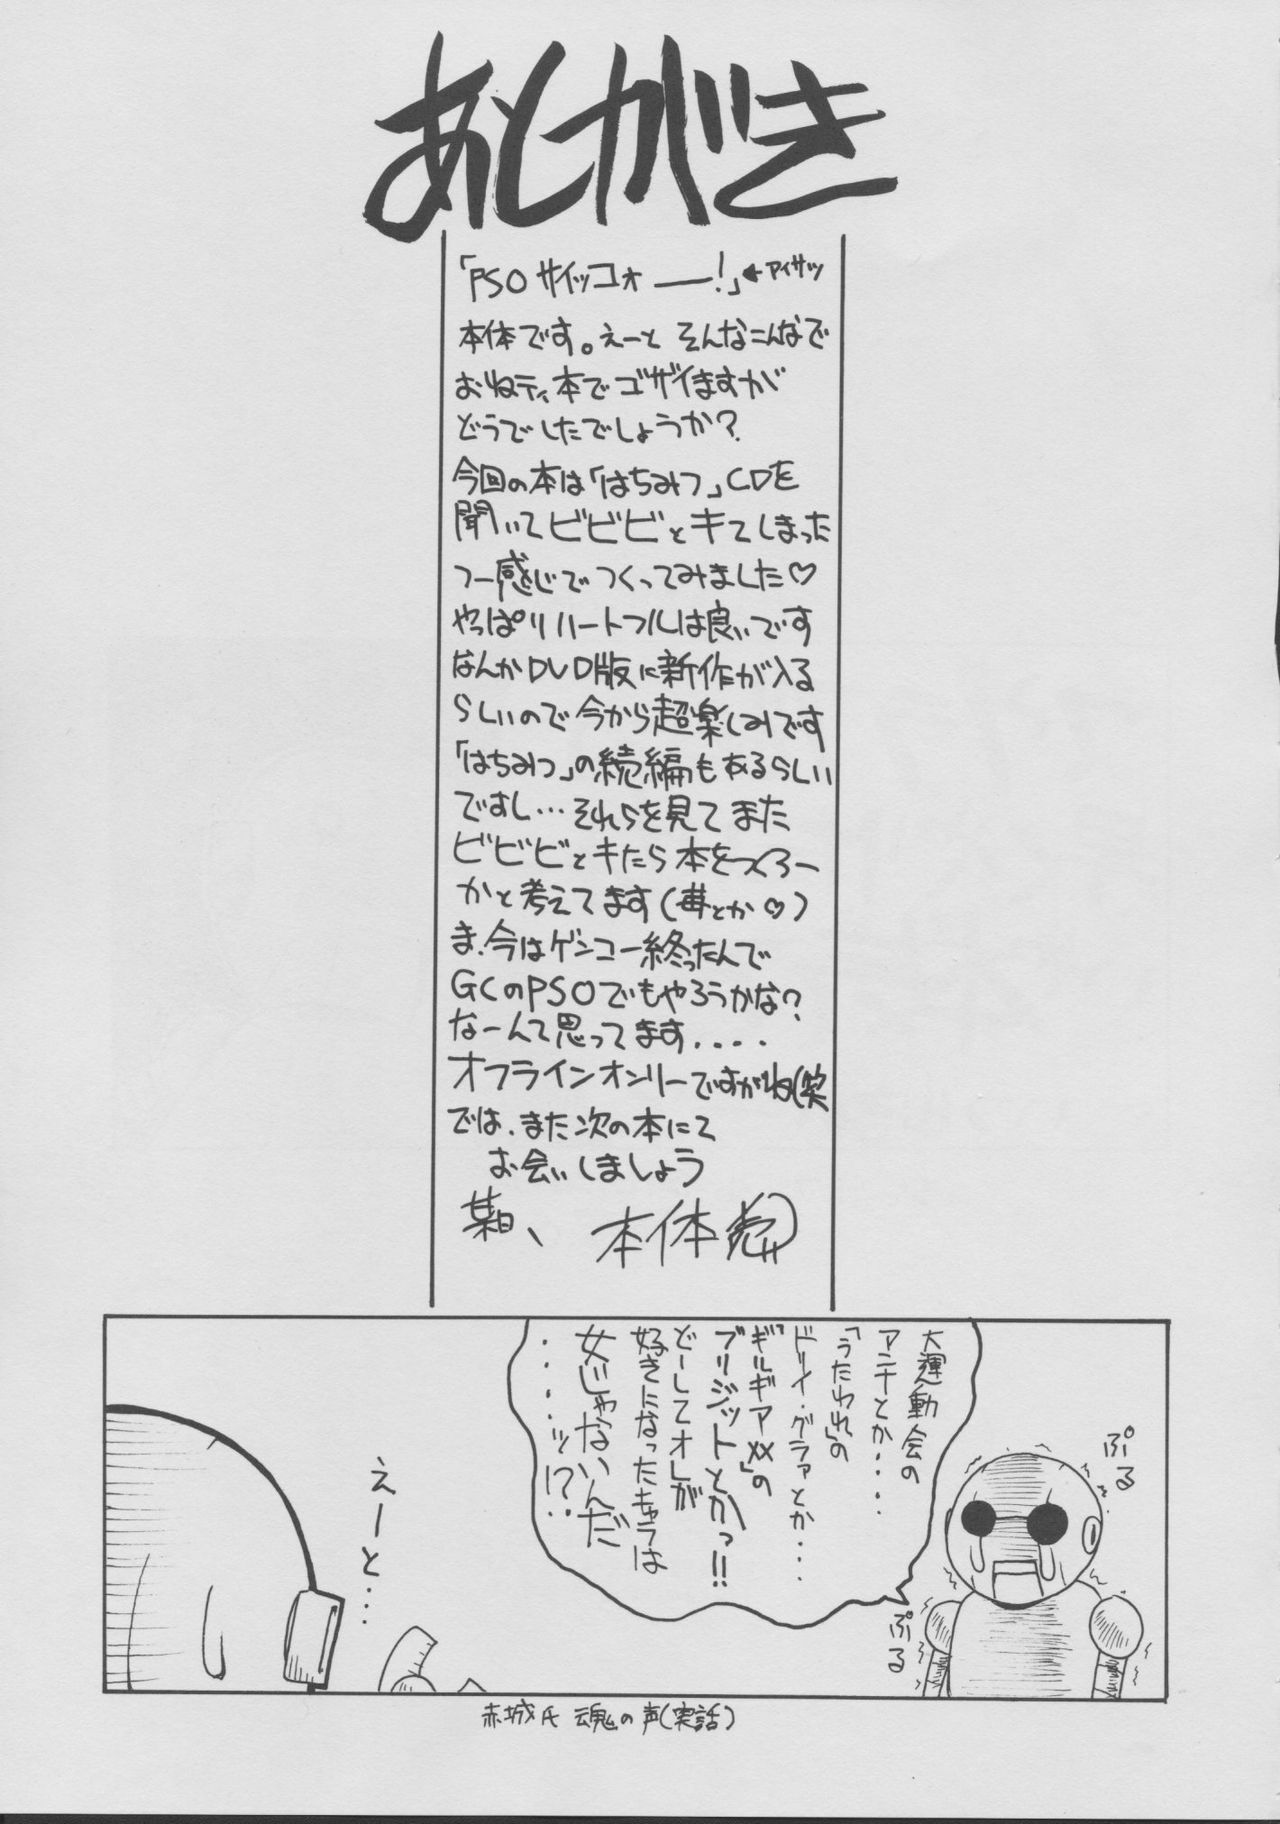 あとがき
「PSO サイッコォ――!」←アイサツ
本体です。えーと そんなこんなで
おねティ本でゴザイますが
どうでしたでしょうか?
今回の本は「はちみつ」CDを
聞いてビビビとキてしまった
つー感じでつくってみました♡
やっぱりハートフルは良いです
なんかDVD版に新作が入る
らしいので今から超楽しみです
「はちみつ」の続編もあるらしい
ですし…それらを見てまた
ビビビとキたら本をつくろー
かと考えてます(苺とか♡)
ま、今はゲンコー終ったんで
GCのPSOでもやろうかな?
なーんて思ってます....
オフラインオンリーですがね(笑
では、また次の本にて
お会いしましょう
某日、 本体売
大運動会の
アニキとか....
「うたわれ」の
ドリィ・グラァとか...
「ギルギアXX」の
ブリジットとかっ!!
どーしてオレが
好きになったキャラは
女じゃないんだ
......ッ!?
ぷる
ぷる
えーと...
赤城氏 魂の声(実話)